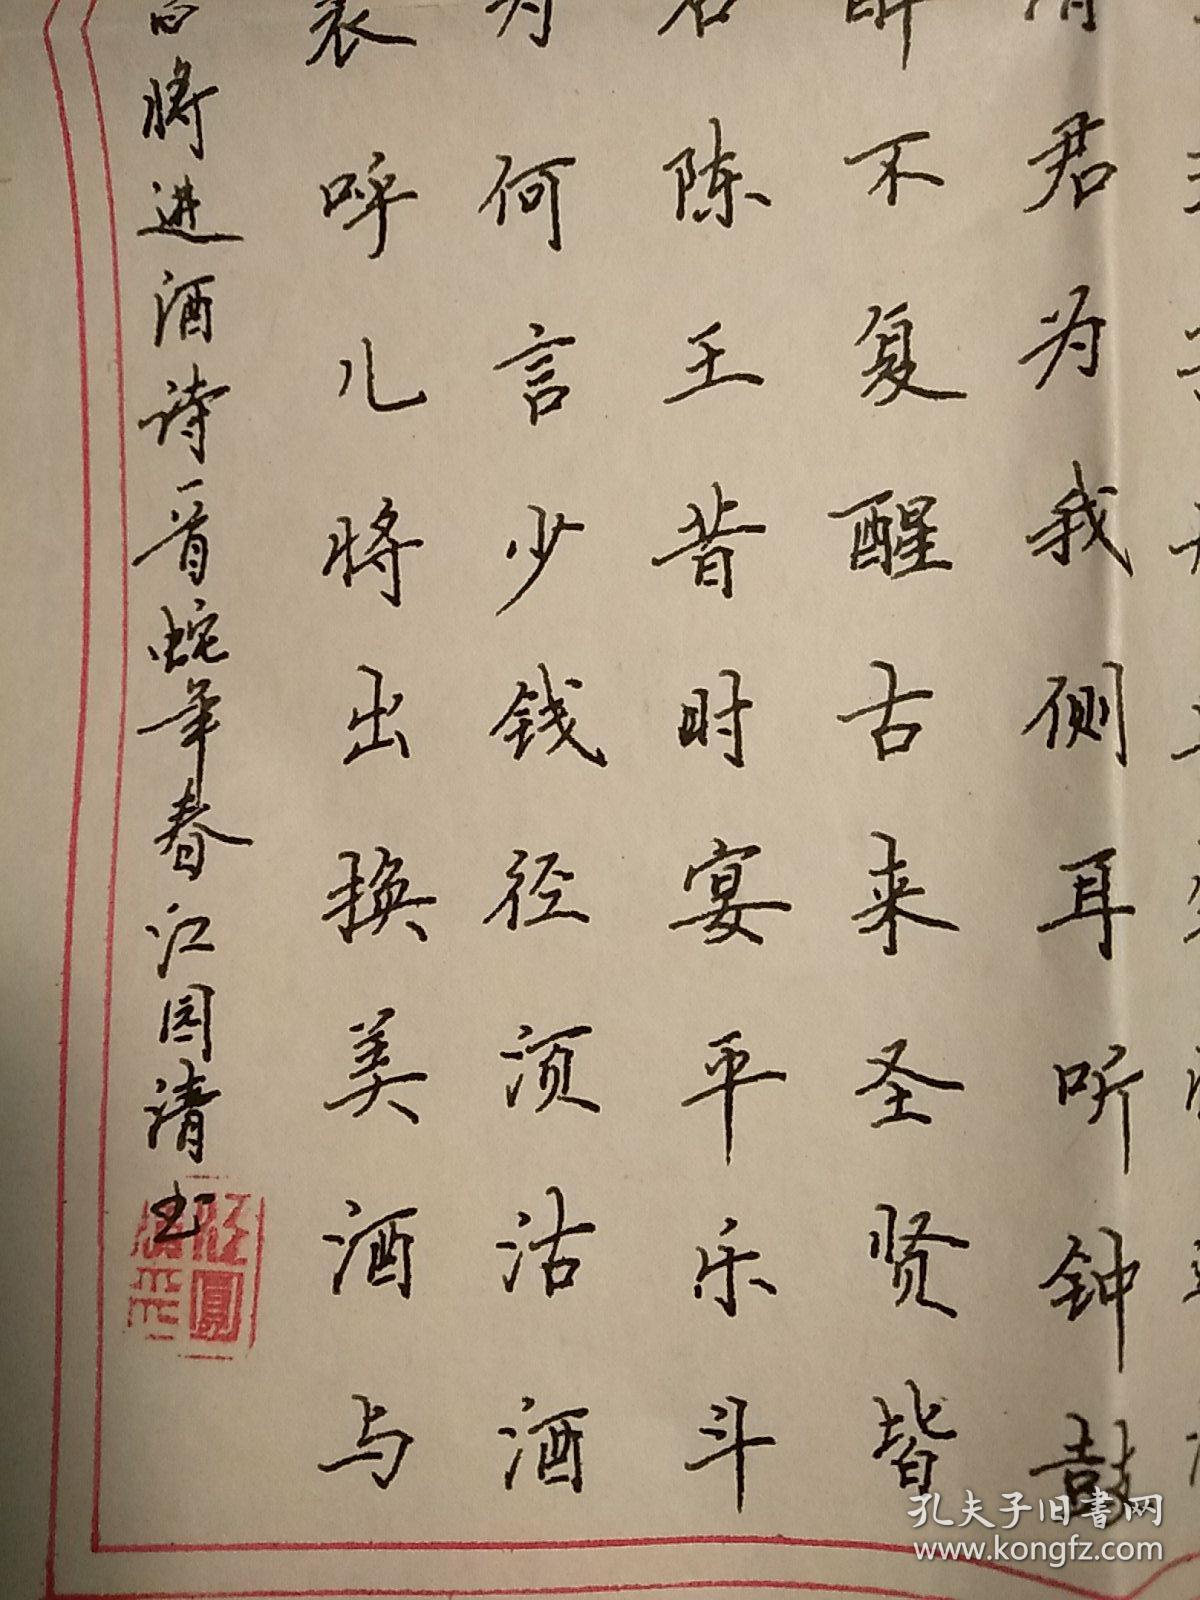 君为我侧耳听钟鼓
醉不复醒古来圣贤皆
名陈王昔时宴平乐斗
为何言少钱径须沽酒
裘呼儿将出换美酒与
白将进酒诗一首蛇年春江圆清书
孔夫子旧书网
www.kongfz.com